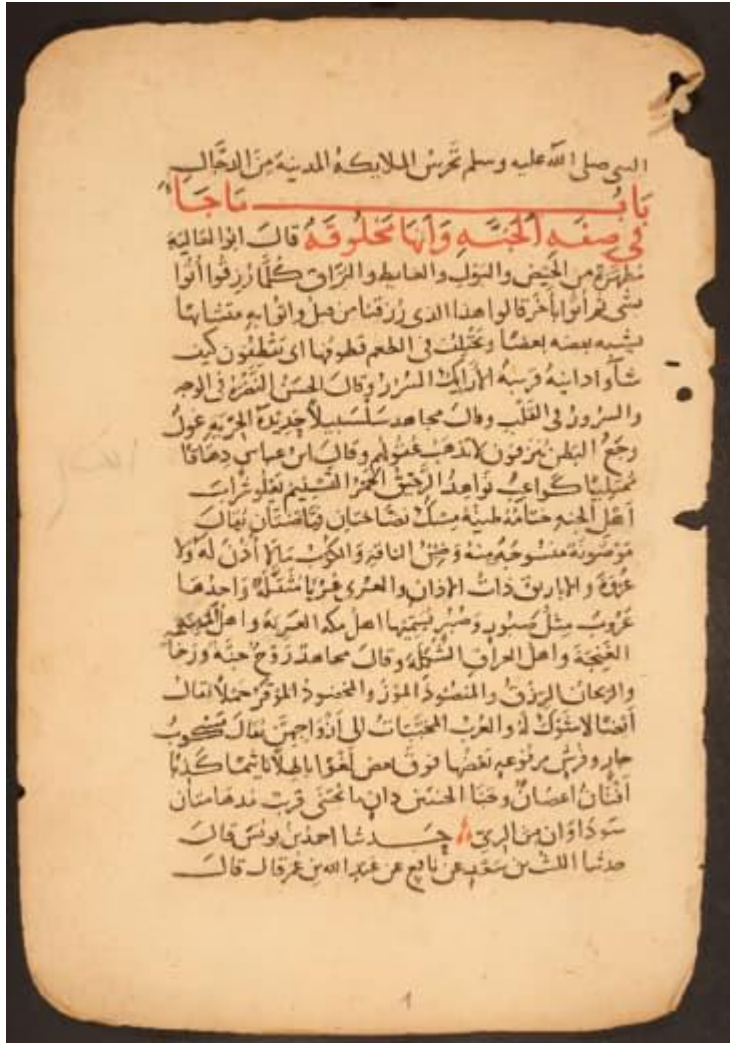 النبى صلى الله عليه وسلم تحرس الملايكة المدينة من الدجال
باب ما جاء
في صفة الجنة وأنها مخلوقة قال ابوا لعالية
مطهرة من الحيض والبول والغايط والبزاق كلما رزقوا أتوا
بشى ثم أتوا بآخر قالوا هذا الذى رزقنا من قبل واتوا به متشابها
يشبه بعضه بعضا ويختلف فى الطعم قطوفها اى يقطفون كيف
شآؤا دانية قريبة الأرايك السرر وقال الحسن النضرة فى الوجه
والسرور فى القلب وقال مجاهد سلسبيلا حديدة الجرية غول
وجع البطن ينزفون لا تذهب عقولهم وقال ابن عباس دهاقا
ممتليا كواعب نواهد الرحيق الخمر التسنيم يعلو شراب
اهل الجنة ختامه طينه مسك نضاختان فياضتان يقال
موضونة منسوجة منه وضين الناقة والكوب مالا أذن له ولا
عروة والاباريق ذات الاذان والعرى عربا مثقلة واحدها
عروب مثل صبور وصبر يسميها اهل مكة العربة واهل المدينة
الغنجة واهل العراق الشكلة وقال مجاهد روح جنة ورخا
والريحان الرزق والمنضود الموز والمخضود الموقر حملا يقال
أيضا لا شوك له والعرب المحببات الى أزواجهن يقال مسكوب
جار وفرش مرفوعة بعضها فوق بعض لغوا باطلا تاثيما كذبا
أفنان اغصان وجنا الجنتين دان ما يجتنى قريب مدهامتان
سوداوان من الرى حدثنا احمد بن يونس قال
حدثنا الليث بن سعد عن نافع عن عبد الله بن عمر قال قال